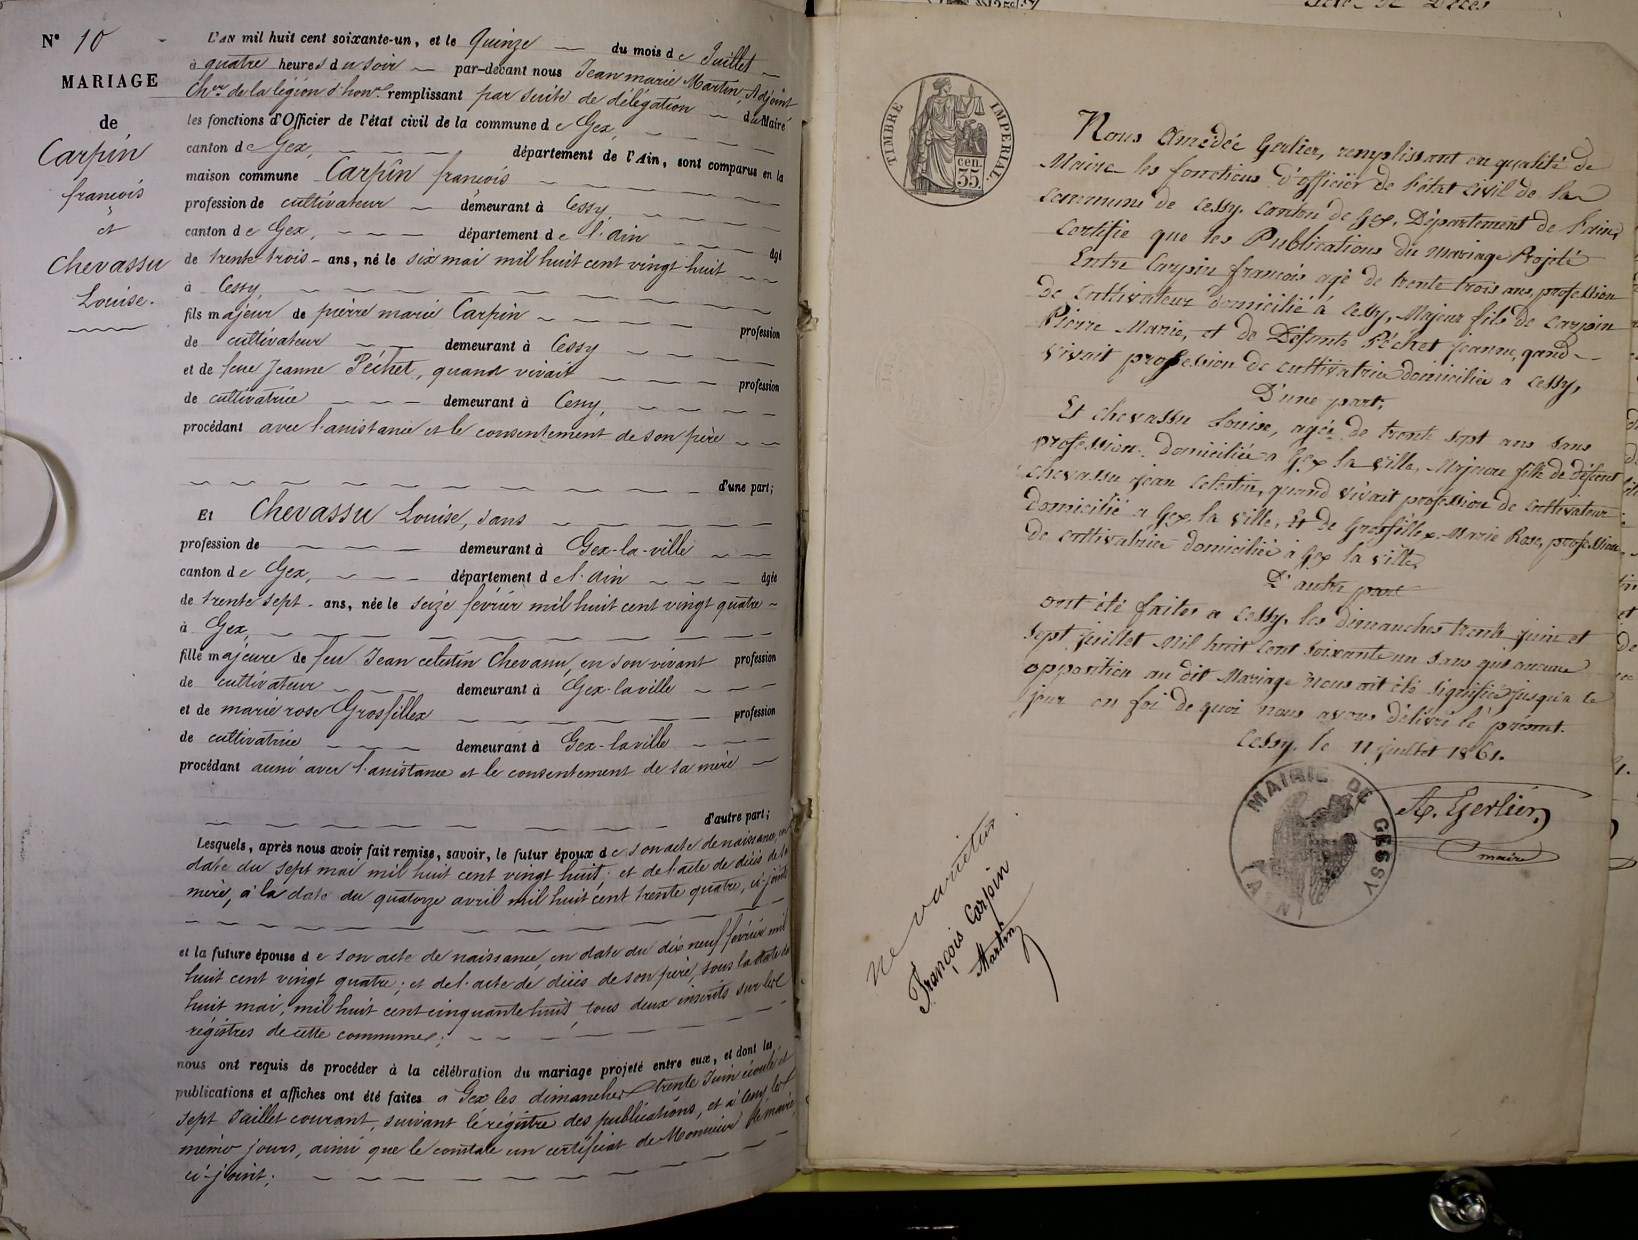 N° 10
MARIAGE
de
Carpin
françois
et
Chevassu
Louise.
L'AN mil huit cent soixante-un, et le Quinze du mois de Juillet
à quatre heures du soir par-devant nous Jean marie Martin, Adjoint
Cher de la légion d'honr remplissant par suite de délégation du Maire
les fonctions d'Officier de l'état civil de la commune de Gex,
canton de Gex, département de l'Ain, sont comparus en la
maison commune Carpin françois
profession de cultivateur demeurant à Cessy,
canton de Gex, département de l'Ain âgé
de trente trois ans, né le six mai mil huit cent vingt huit
à Cessy
fils majeur de pierre marie Carpin profession
de cultivateur demeurant à Cessy
et de feue Jeanne Péchet, quand vivait profession
de cultivatrice demeurant à Cessy,
procédant avec l'assistance et le consentement de son père
d'une part;
Et Chevassu Louise, sans
profession de demeurant à Gex-la-ville
canton de Gex, département de l'Ain âgée
de trente sept ans, née le seize février mil huit cent vingt quatre
à Gex,
fille majeure de feu Jean celestin Chevassu, en son vivant profession
de cultivateur demeurant à Gex-laville
et de marie rose Grosfillex profession
de cultivatrice demeurant à Gex-laville
procédant aussi avec l'assistance et le consentement de sa mère
d'autre part;
Lesquels, après nous avoir fait remise, savoir, le futur époux de son acte de naissance, en
date du sept mai mil huit cent vingt huit; et de l'acte de décès de la
mère, à la date du quatorze avril mil huit cent trente quatre, ci-joints
et la future épouse de son acte de naissance, en date du dix neuf février mil
huit cent vingt quatre; et de l'acte de décès de son père, sous la date du
huit mai, mil huit cent cinquante huit, tous deux inscrits sur les
régistres de cette commune;
nous ont requis de procéder à la célébration du mariage projeté entre eux, et dont les
publications et affiches ont été faites a Gex les dimanches trente Juin écoulé et
sept Juillet courant, suivant le régistre des publications, et à Cessy les
mêmes jours, ainsi que le constate un certificat de Monsieur le maire
ci-joint;
TIMBRE IMPERIAL
cen.
35
Nous Amédée Gerlier, remplissant en qualité de
Maire les fonctions d'officier de l'état civil de la
commune de Cessy, canton de Gex, Département de l'ain,
Certifie que les Publications du Mariage Projeté
Entre Carpin françois agé de trente trois ans, profession
de cultivateur domicilié à Cessy, Majeur fils de Carpin
Pierre Marie, et de Défunte Péchet jeanne, qand
vivait profession de cultivatrice domiciliée a Cessy,
D'une part,
Et Chevassu Louise, agée de trente sept ans sans
profession domiciliée a Gex la ville, Majeure fille de défunt
Chevassu jean Celestin, quand vivait profession de cultivateur
domicilié a Gex la ville, Et de Grosfillex Marie Rose, profession
de cultivatrice domiciliée à Gex la ville
D'autre part
ont été faites a Cessy, les dimanches trente juin et
sept juillet Mil huit cent soixante un sans qu'aucune
opposition au dit Mariage nous ait été signifiée jusqu'a ce
jour en foi de quoi nous avons délivré le présent.
Cessy, le 11 juillet 1861.
A. Gerlier
maire
MAIRIE DE CESSY (AIN)
ne varietur
François Carpin
Martin